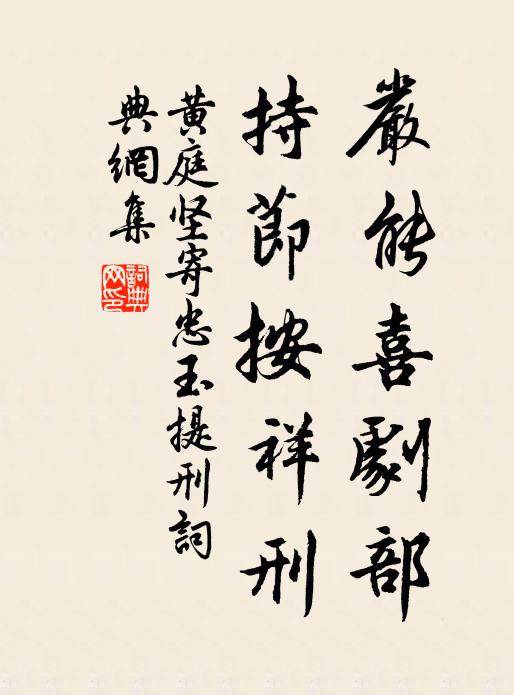 嚴能喜劇部
持節按祥刑
黄庭坚寄忠玉提刑詞
典網集
詞典网印